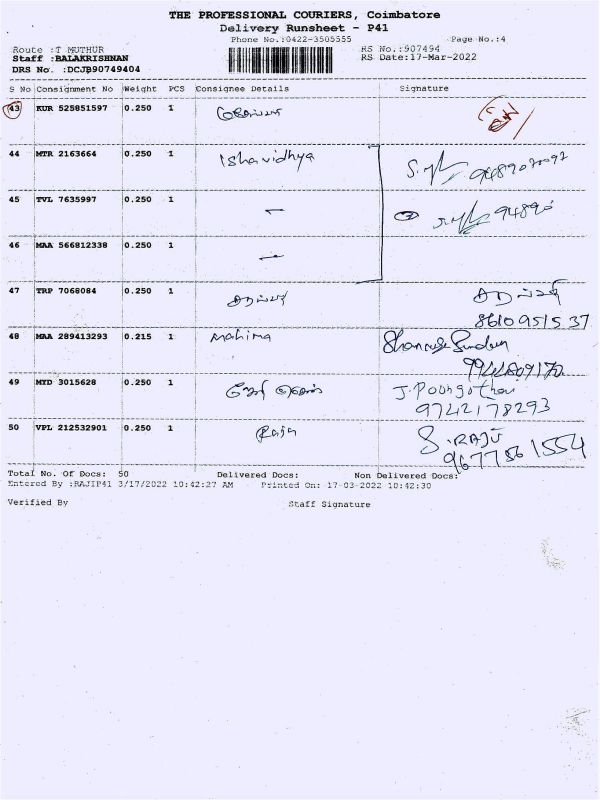 THE PROFESSIONAL COURIERS, Coimbatore
Delivery Runsheet - P41
Phone No.:0422-3505555 Page No.:4
Route :T MUTHUR RS No.:907494
Staff :BALAKRISHNAN RS Date:17-Mar-2022
DRS No. :DCJB90749404
S No Consignment No Weight PCS Consignee Details Signature
43 KUR 525851597 0.250 1
44 MTR 2163664 0.250 1 Ishavidhya
45 TVL 7635997 0.250 1 —
46 MAA 566812338 0.250 1 —
47 TRP 7068084 0.250 1
8610951537
48 MAA 289413293 0.215 1 mahima
49 MYD 3015628 0.250 1 J. Poongothai
9742178293
50 VPL 212532901 0.250 1 Raja S. RAJU
9677561554
Total No. Of Docs: 50 Delivered Docs: Non Delivered Docs:
Entered By :RAJIP41 3/17/2022 10:42:27 AM Printed On: 17-03-2022 10:42:30
Verified By Staff Signature